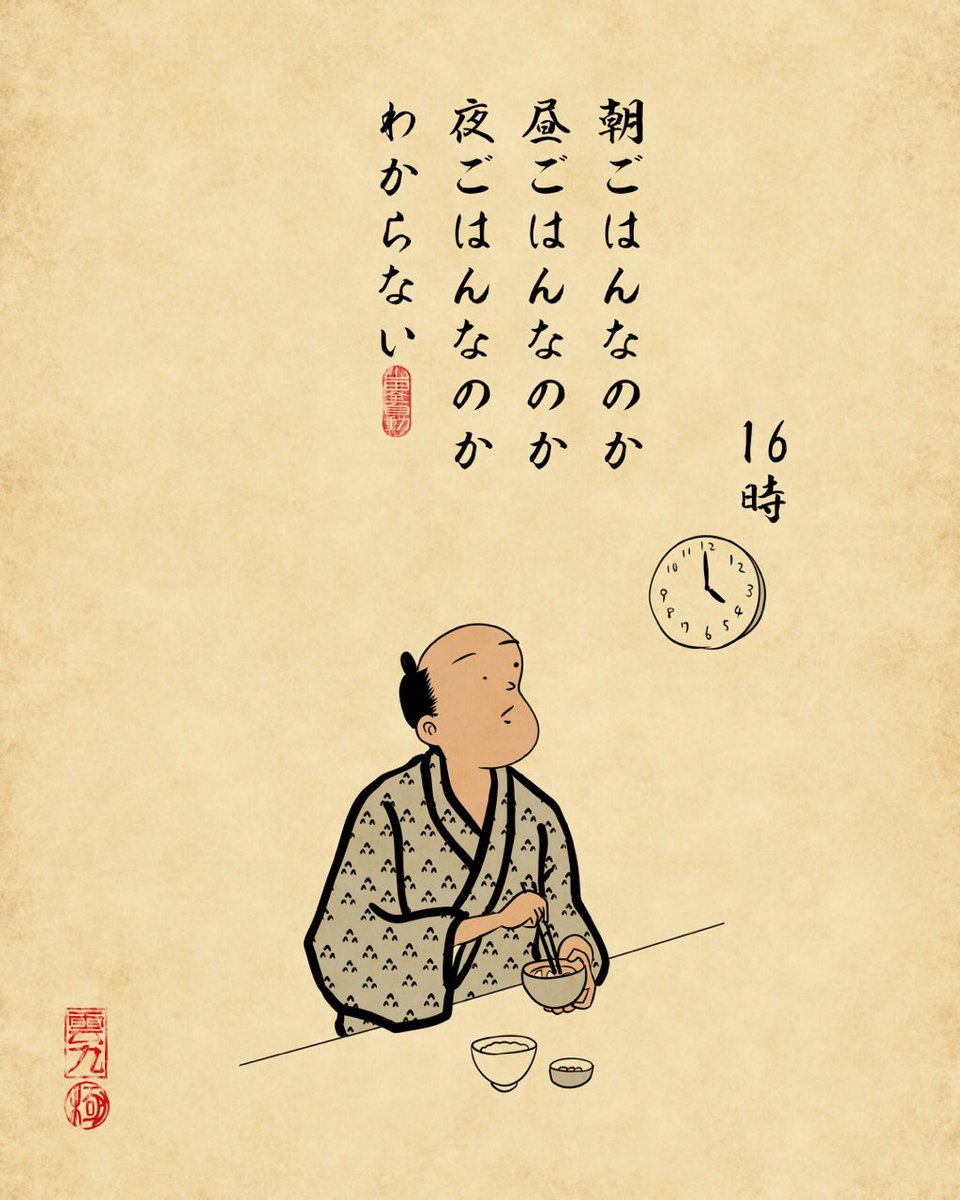 朝ごはんなのか
昼ごはんなのか
夜ごはんなのか
わからない
16時
12
12
3
4
5
6
7
8
9
10
11